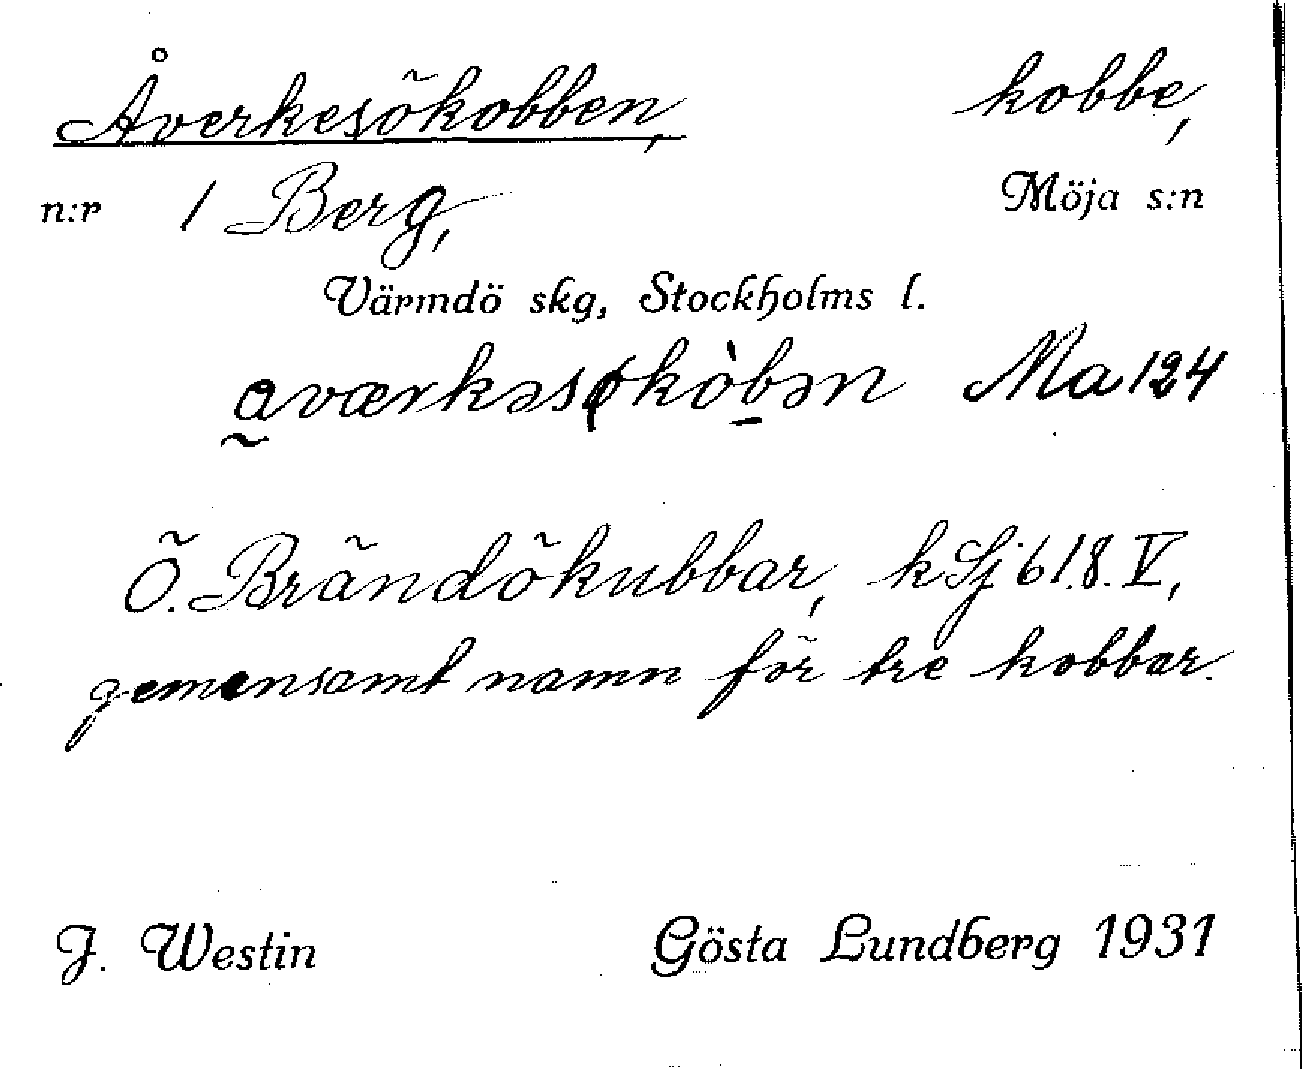 Åverkesökobben, kobbe,
n:r 1 Berg, Möja s:n
Värmdö skg, Stockholms l.
a̰værkəsøkòb̠ən Ma 124
Ö. Brändökubbar, kSj 61.8. V,
gemensamt namn för tre kobbar.
J. Westin Gösta Lundberg 1931